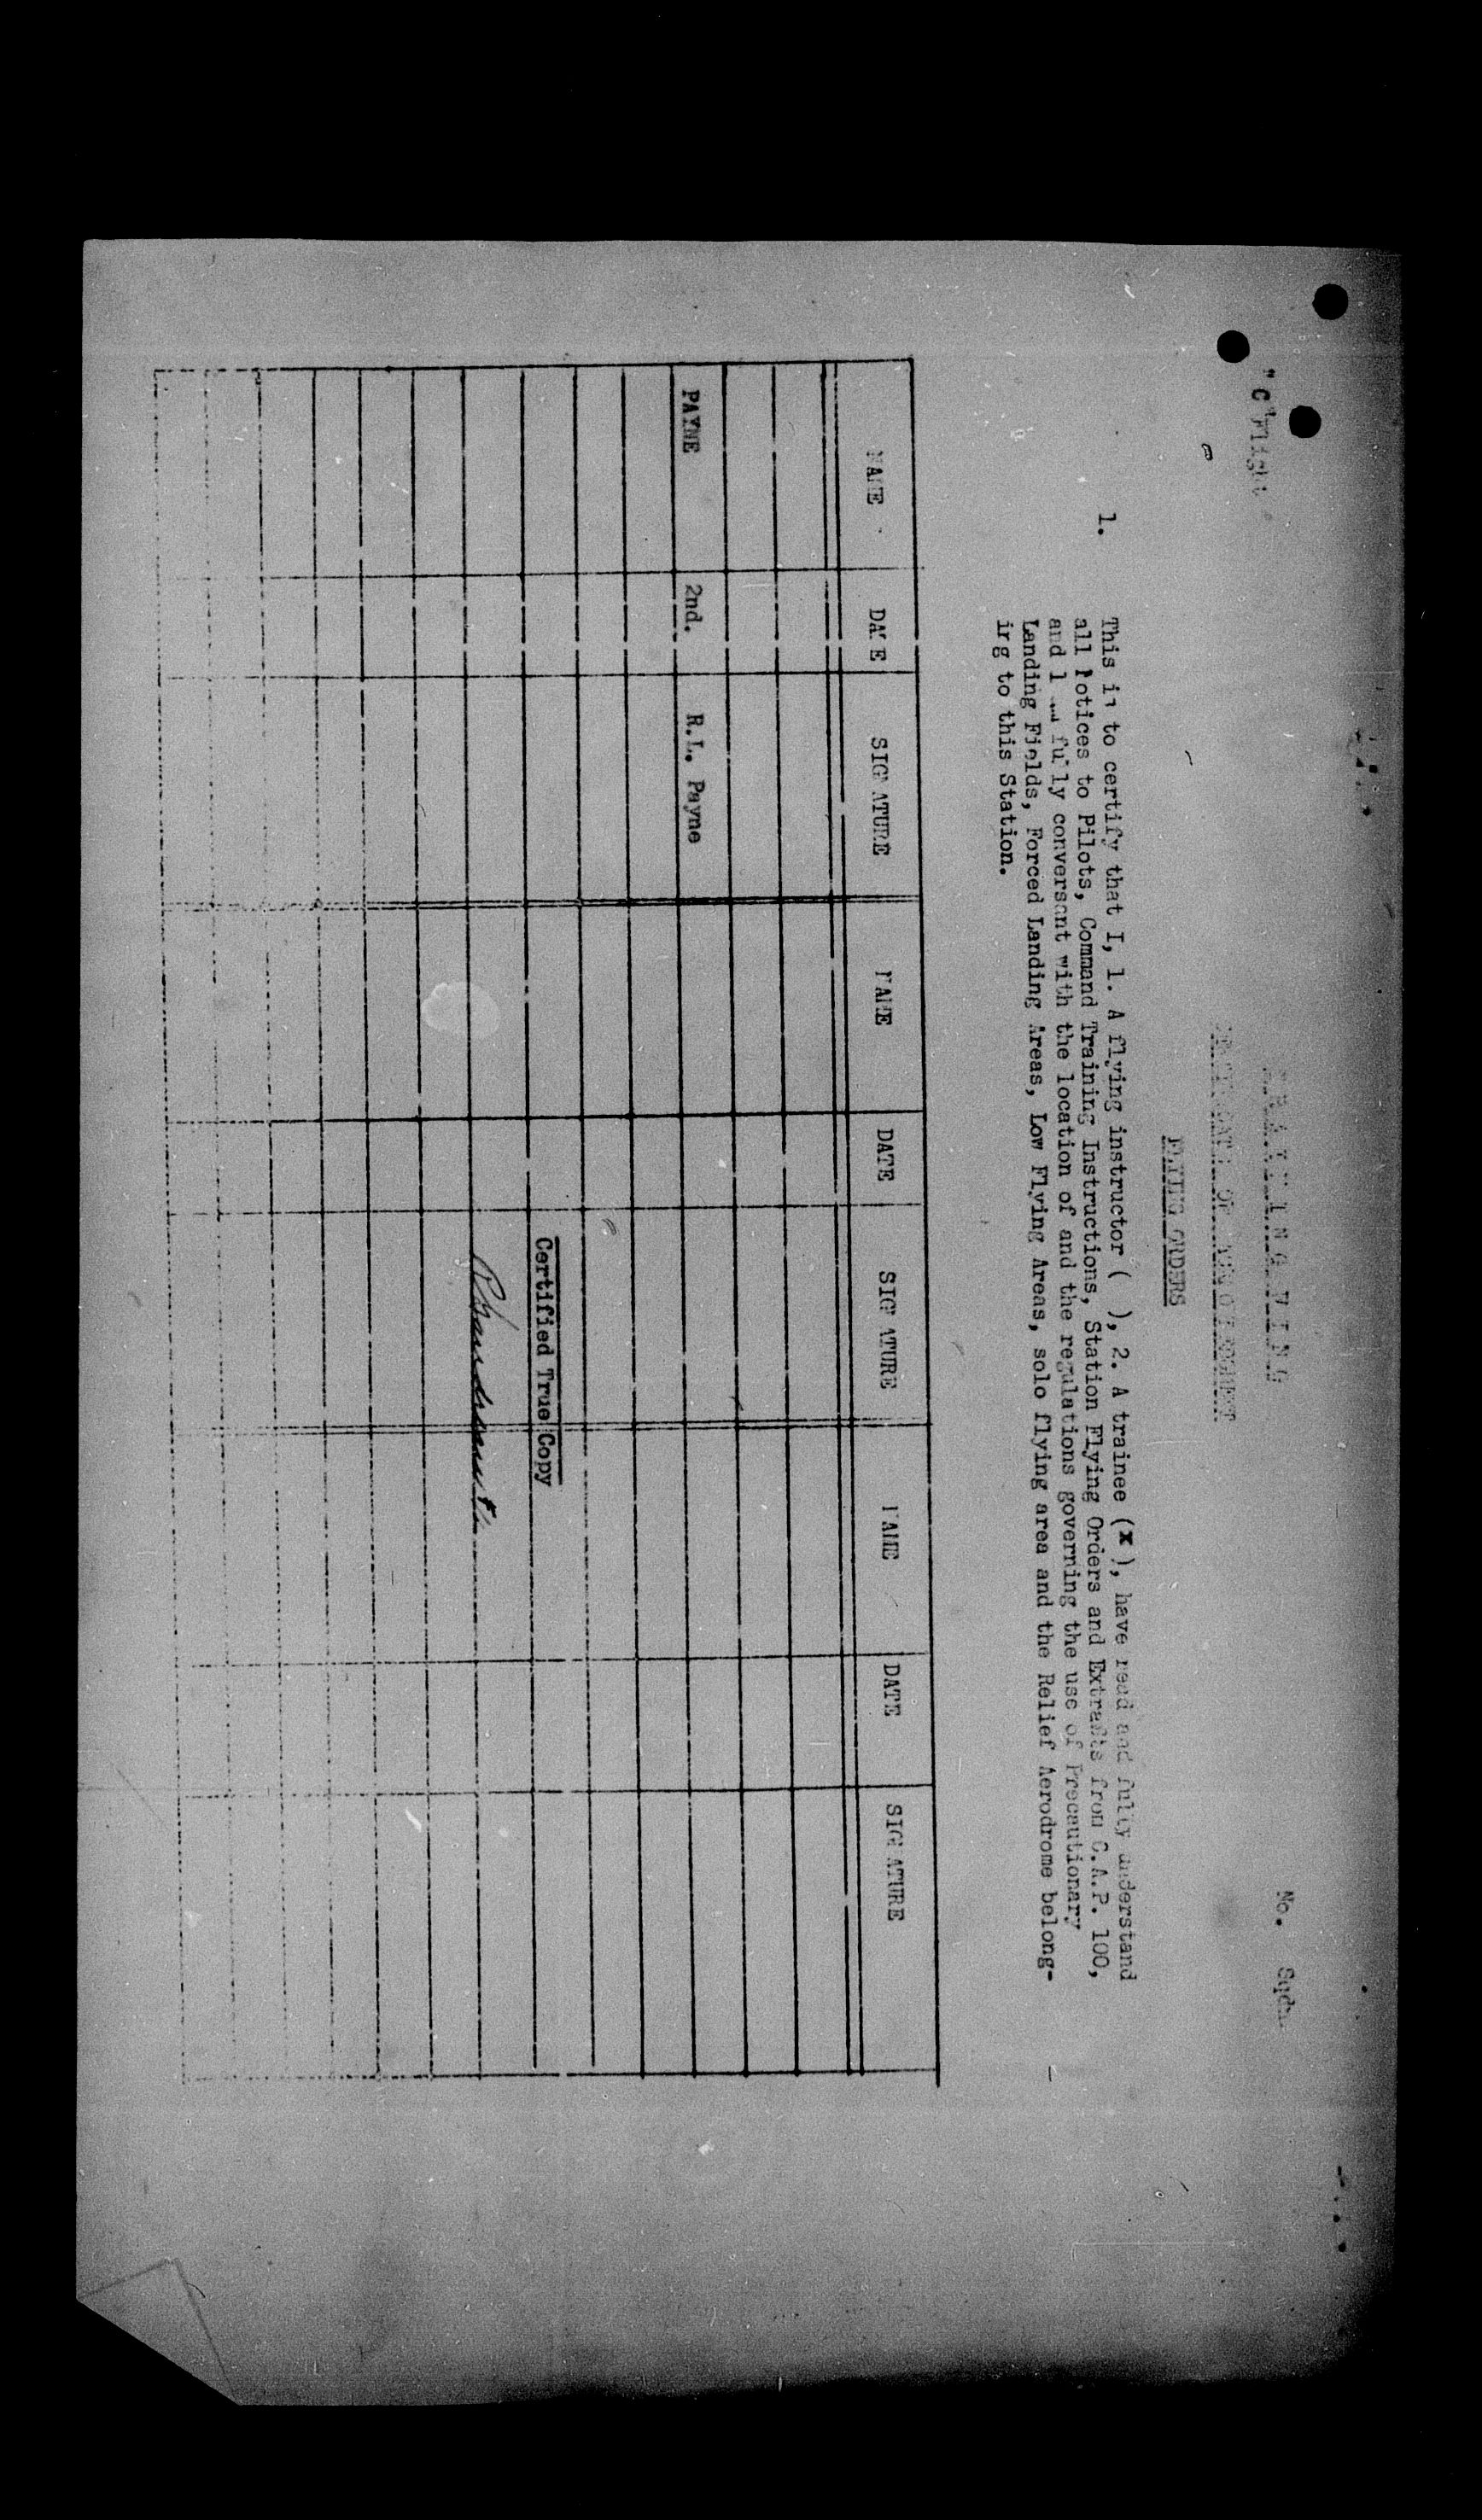 "C" Flight
No.    Sqdn.
T R A I N I N G  W I N G
CERTIFICATE OF
FLYING ORDERS
1. This is to certify that I, 1. A flying instructor ( ), 2. A trainee (x), have read and fully understand
all Notices to Pilots, Command Training Instructions, Station Flying Orders and Extracts from C.A.P. 100,
and I am fully conversant with the location of and the regulations governing the use of Precautionary
Landing Fields, Forced Landing Areas, Low Flying Areas, solo flying area and the Relief Aerodrome belong-
irg to this Station.
NAME DATE SIGNATURE NAME DATE SIGNATURE NAME DATE SIGNATURE
PAYNE 2nd. R.L. Payne
Certified True Copy